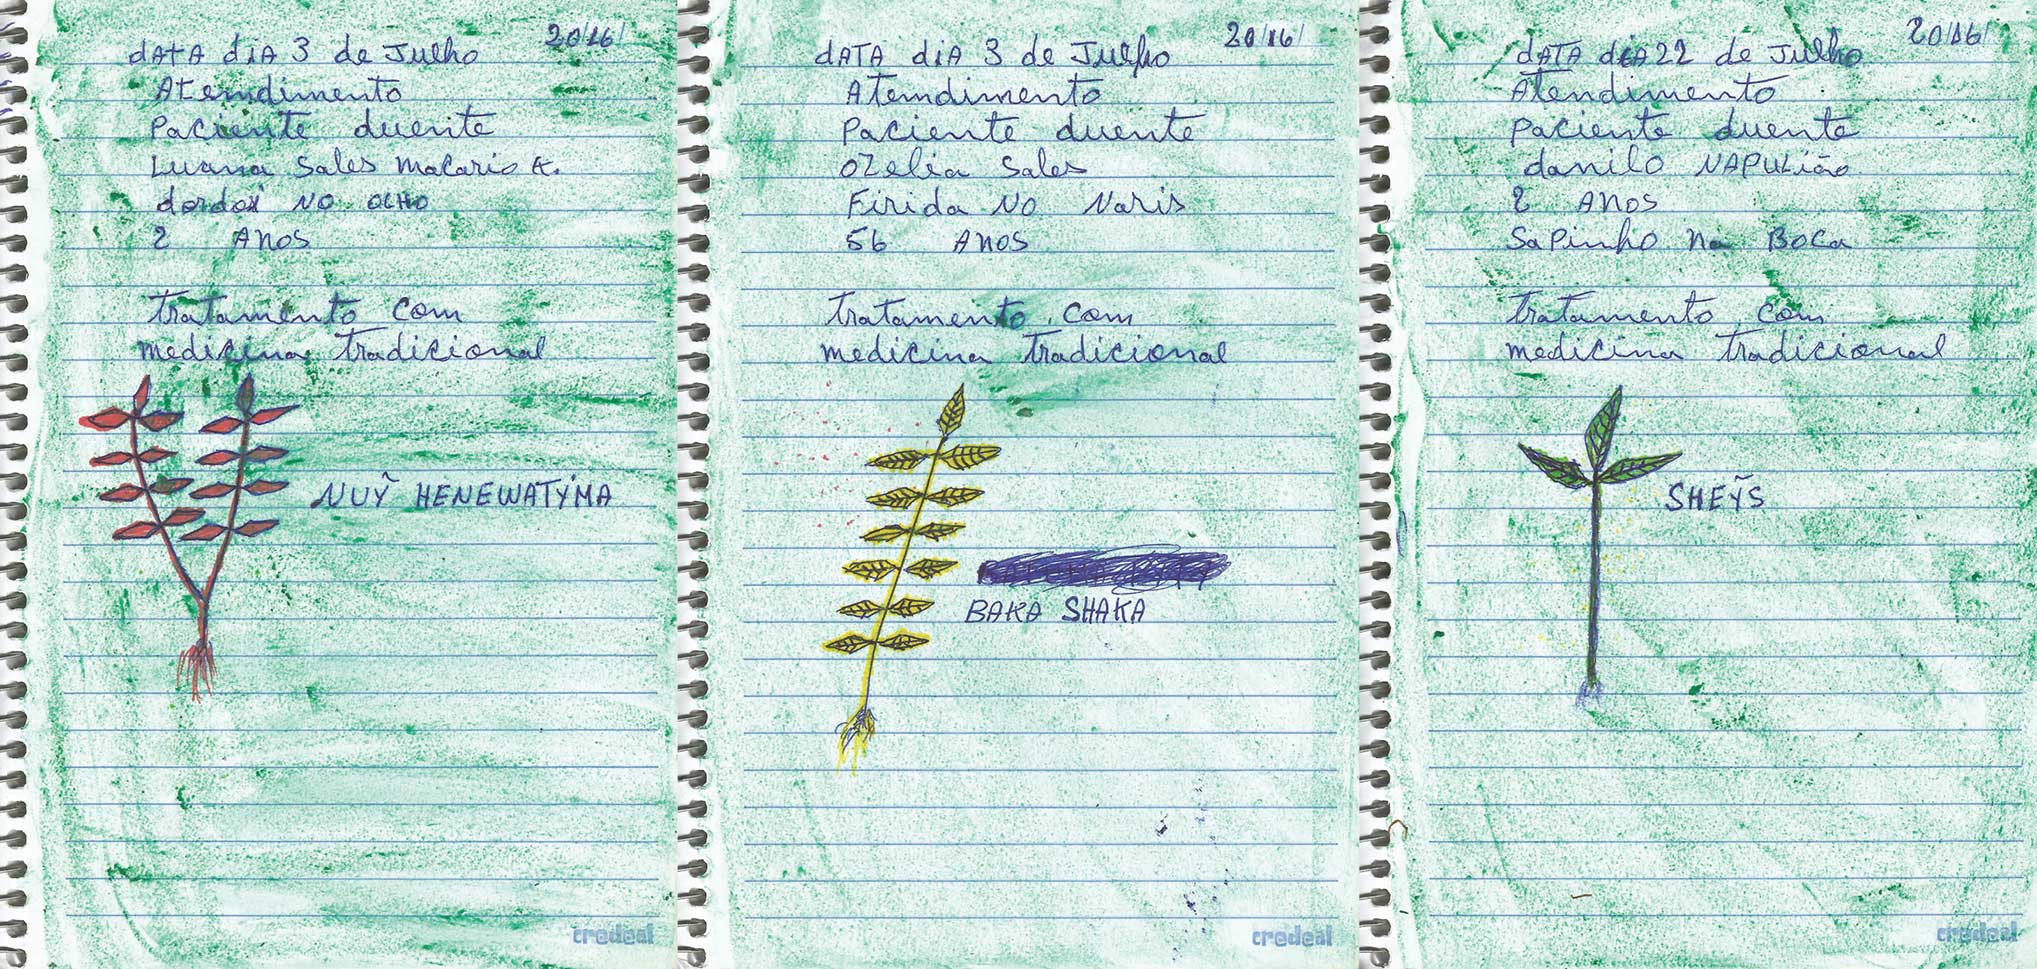 20/16/
dATA diA 3 de Julho
Atemdimento
Paciente duente
Luana Sales Macario K.
dordoi NO OLHO
2 ANOS
tratamento com
medicina tradicional
NUỸ HENEWATÝMA
credeal
20/16/
dATA diA 3 de Julho
Atemdimento
Paciente duente
OZelia Sales
Firida NO Naris
56 ANOS
tratamento com
medicina tradicional
BAKA SHAKA
credeal
20/16/
dATA diA 22 de Julho
Atendimento
Paciente duente
danilo NAPULião
2 ANOS
SaPinho Na BOCa
tratamento com
medicina tradicional
SHEỸS
credeal